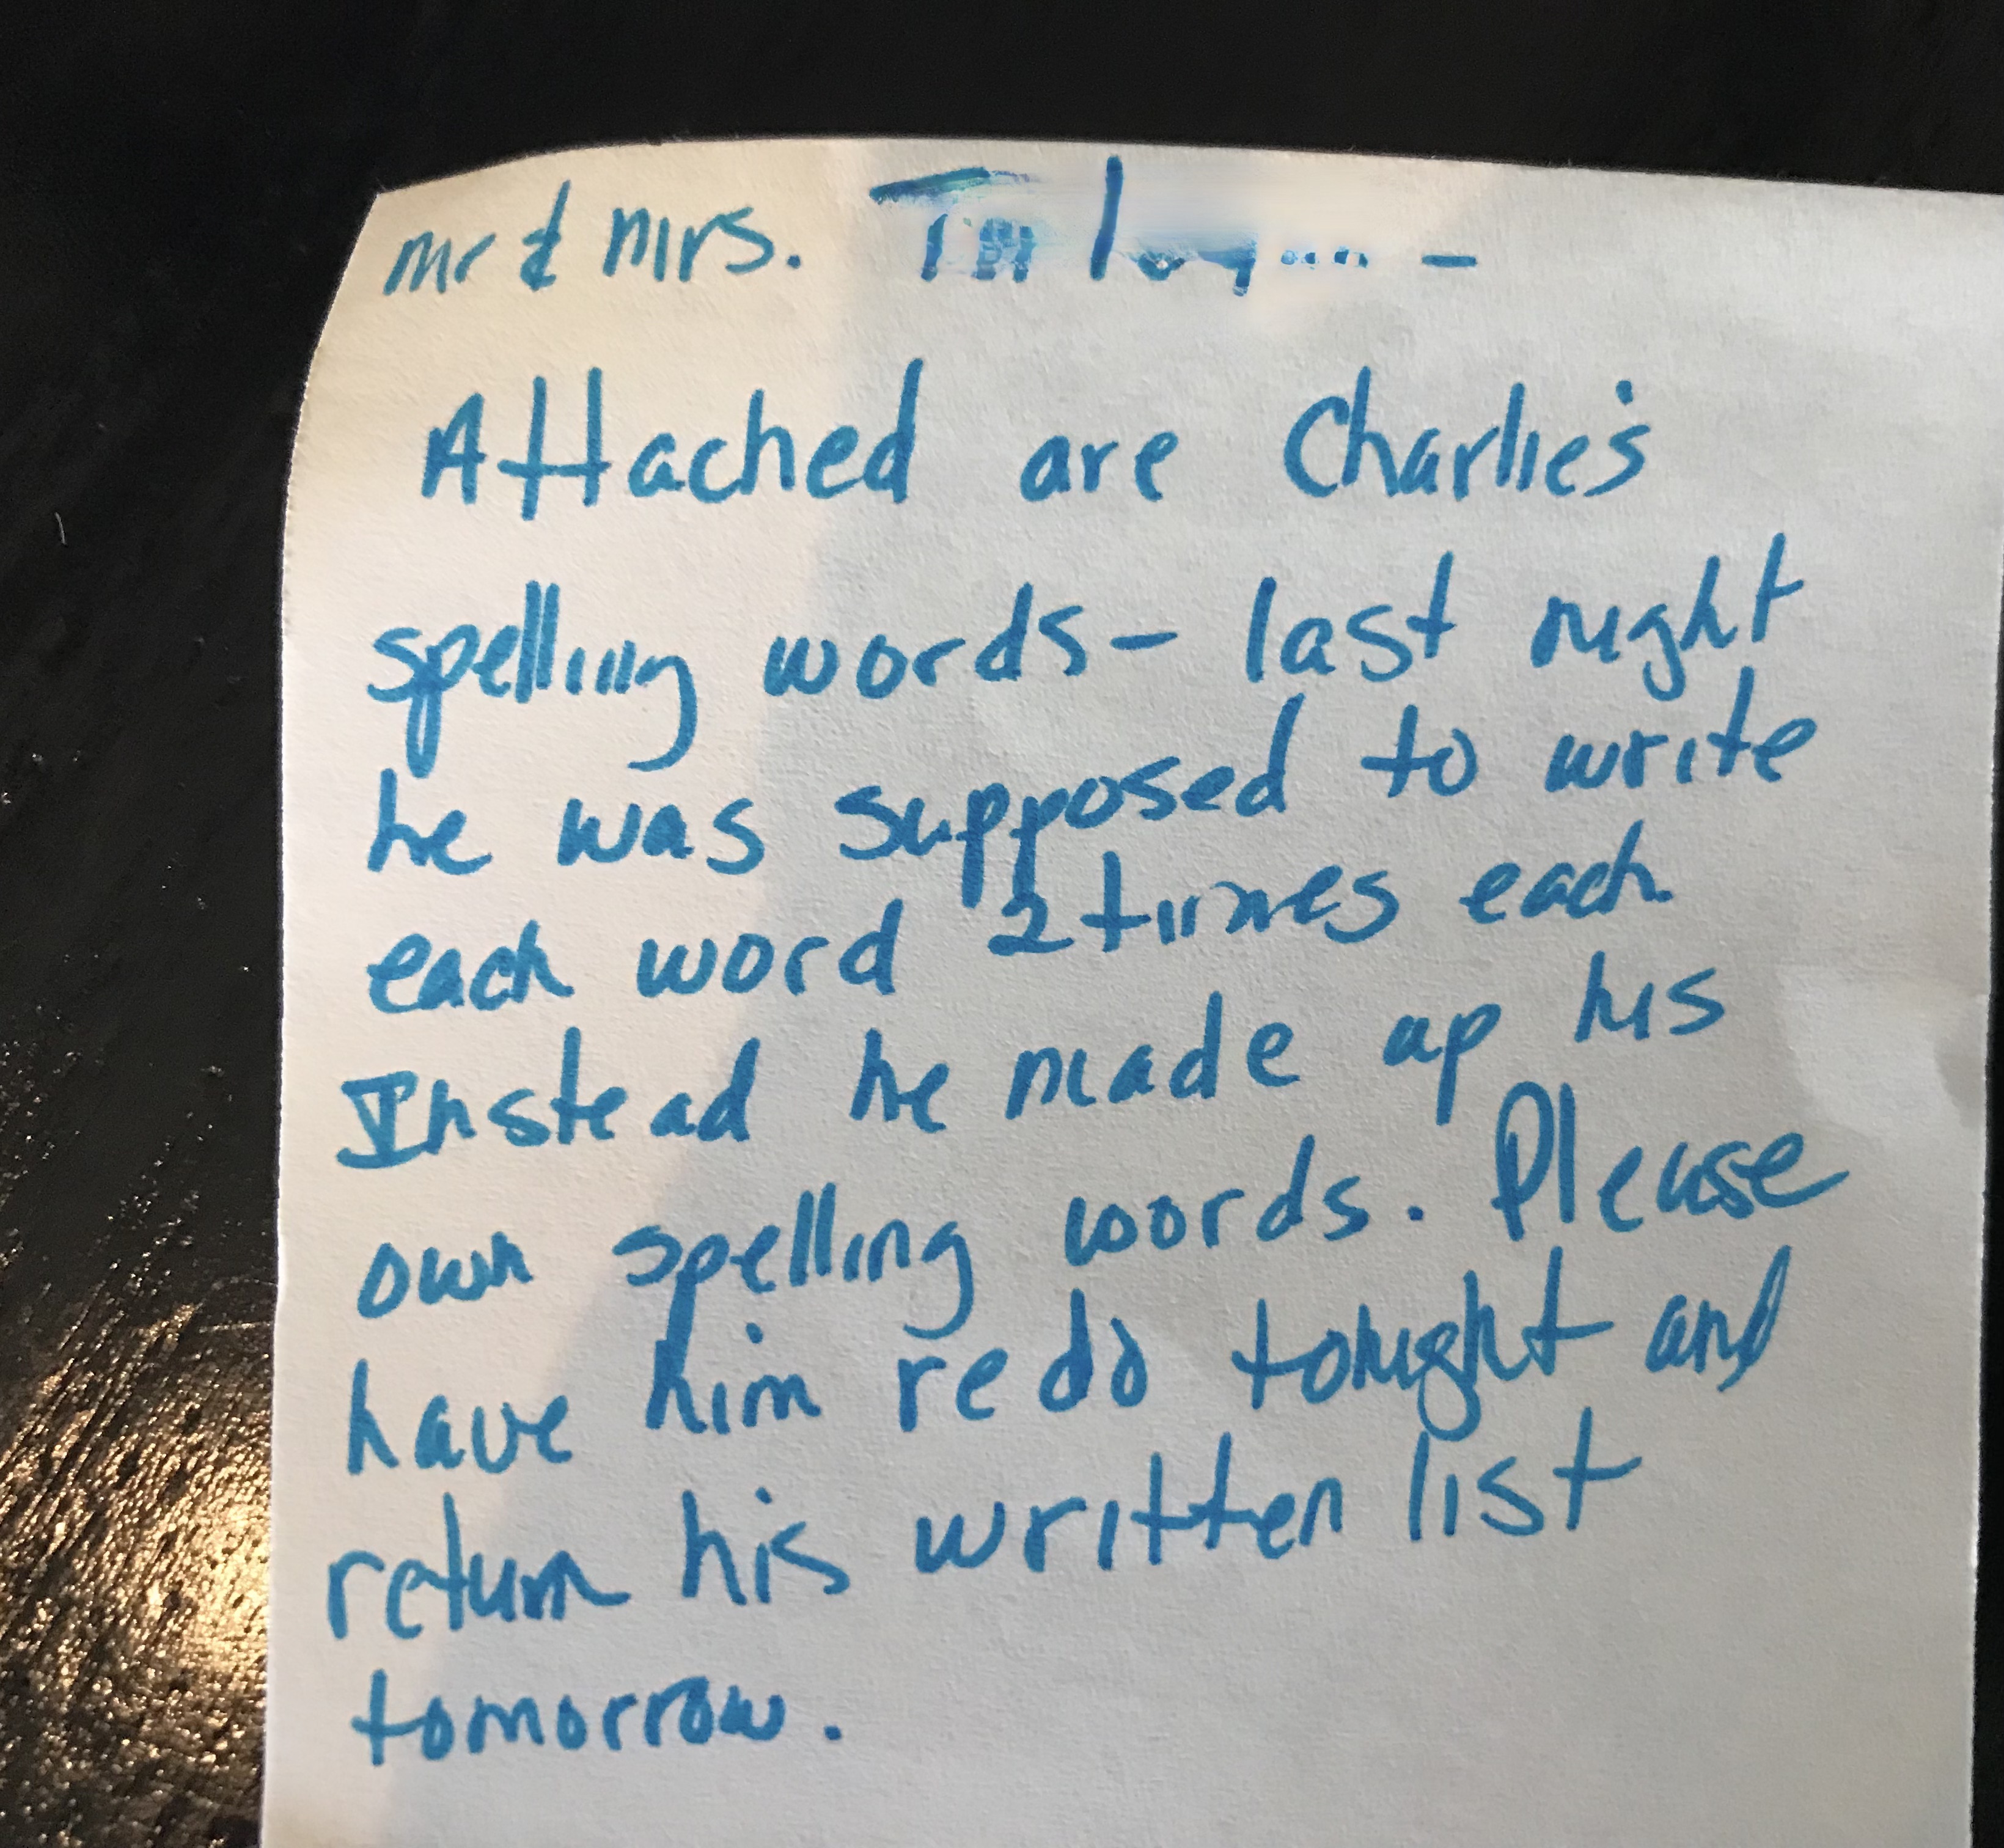 mr & mrs. -
Attached are Charlie's
spelling words- last night
he was supposed to write
each word 2 times each
Instead he made up his
own spelling words. Please
have him redo tonight and
return his written list
tomorrow.